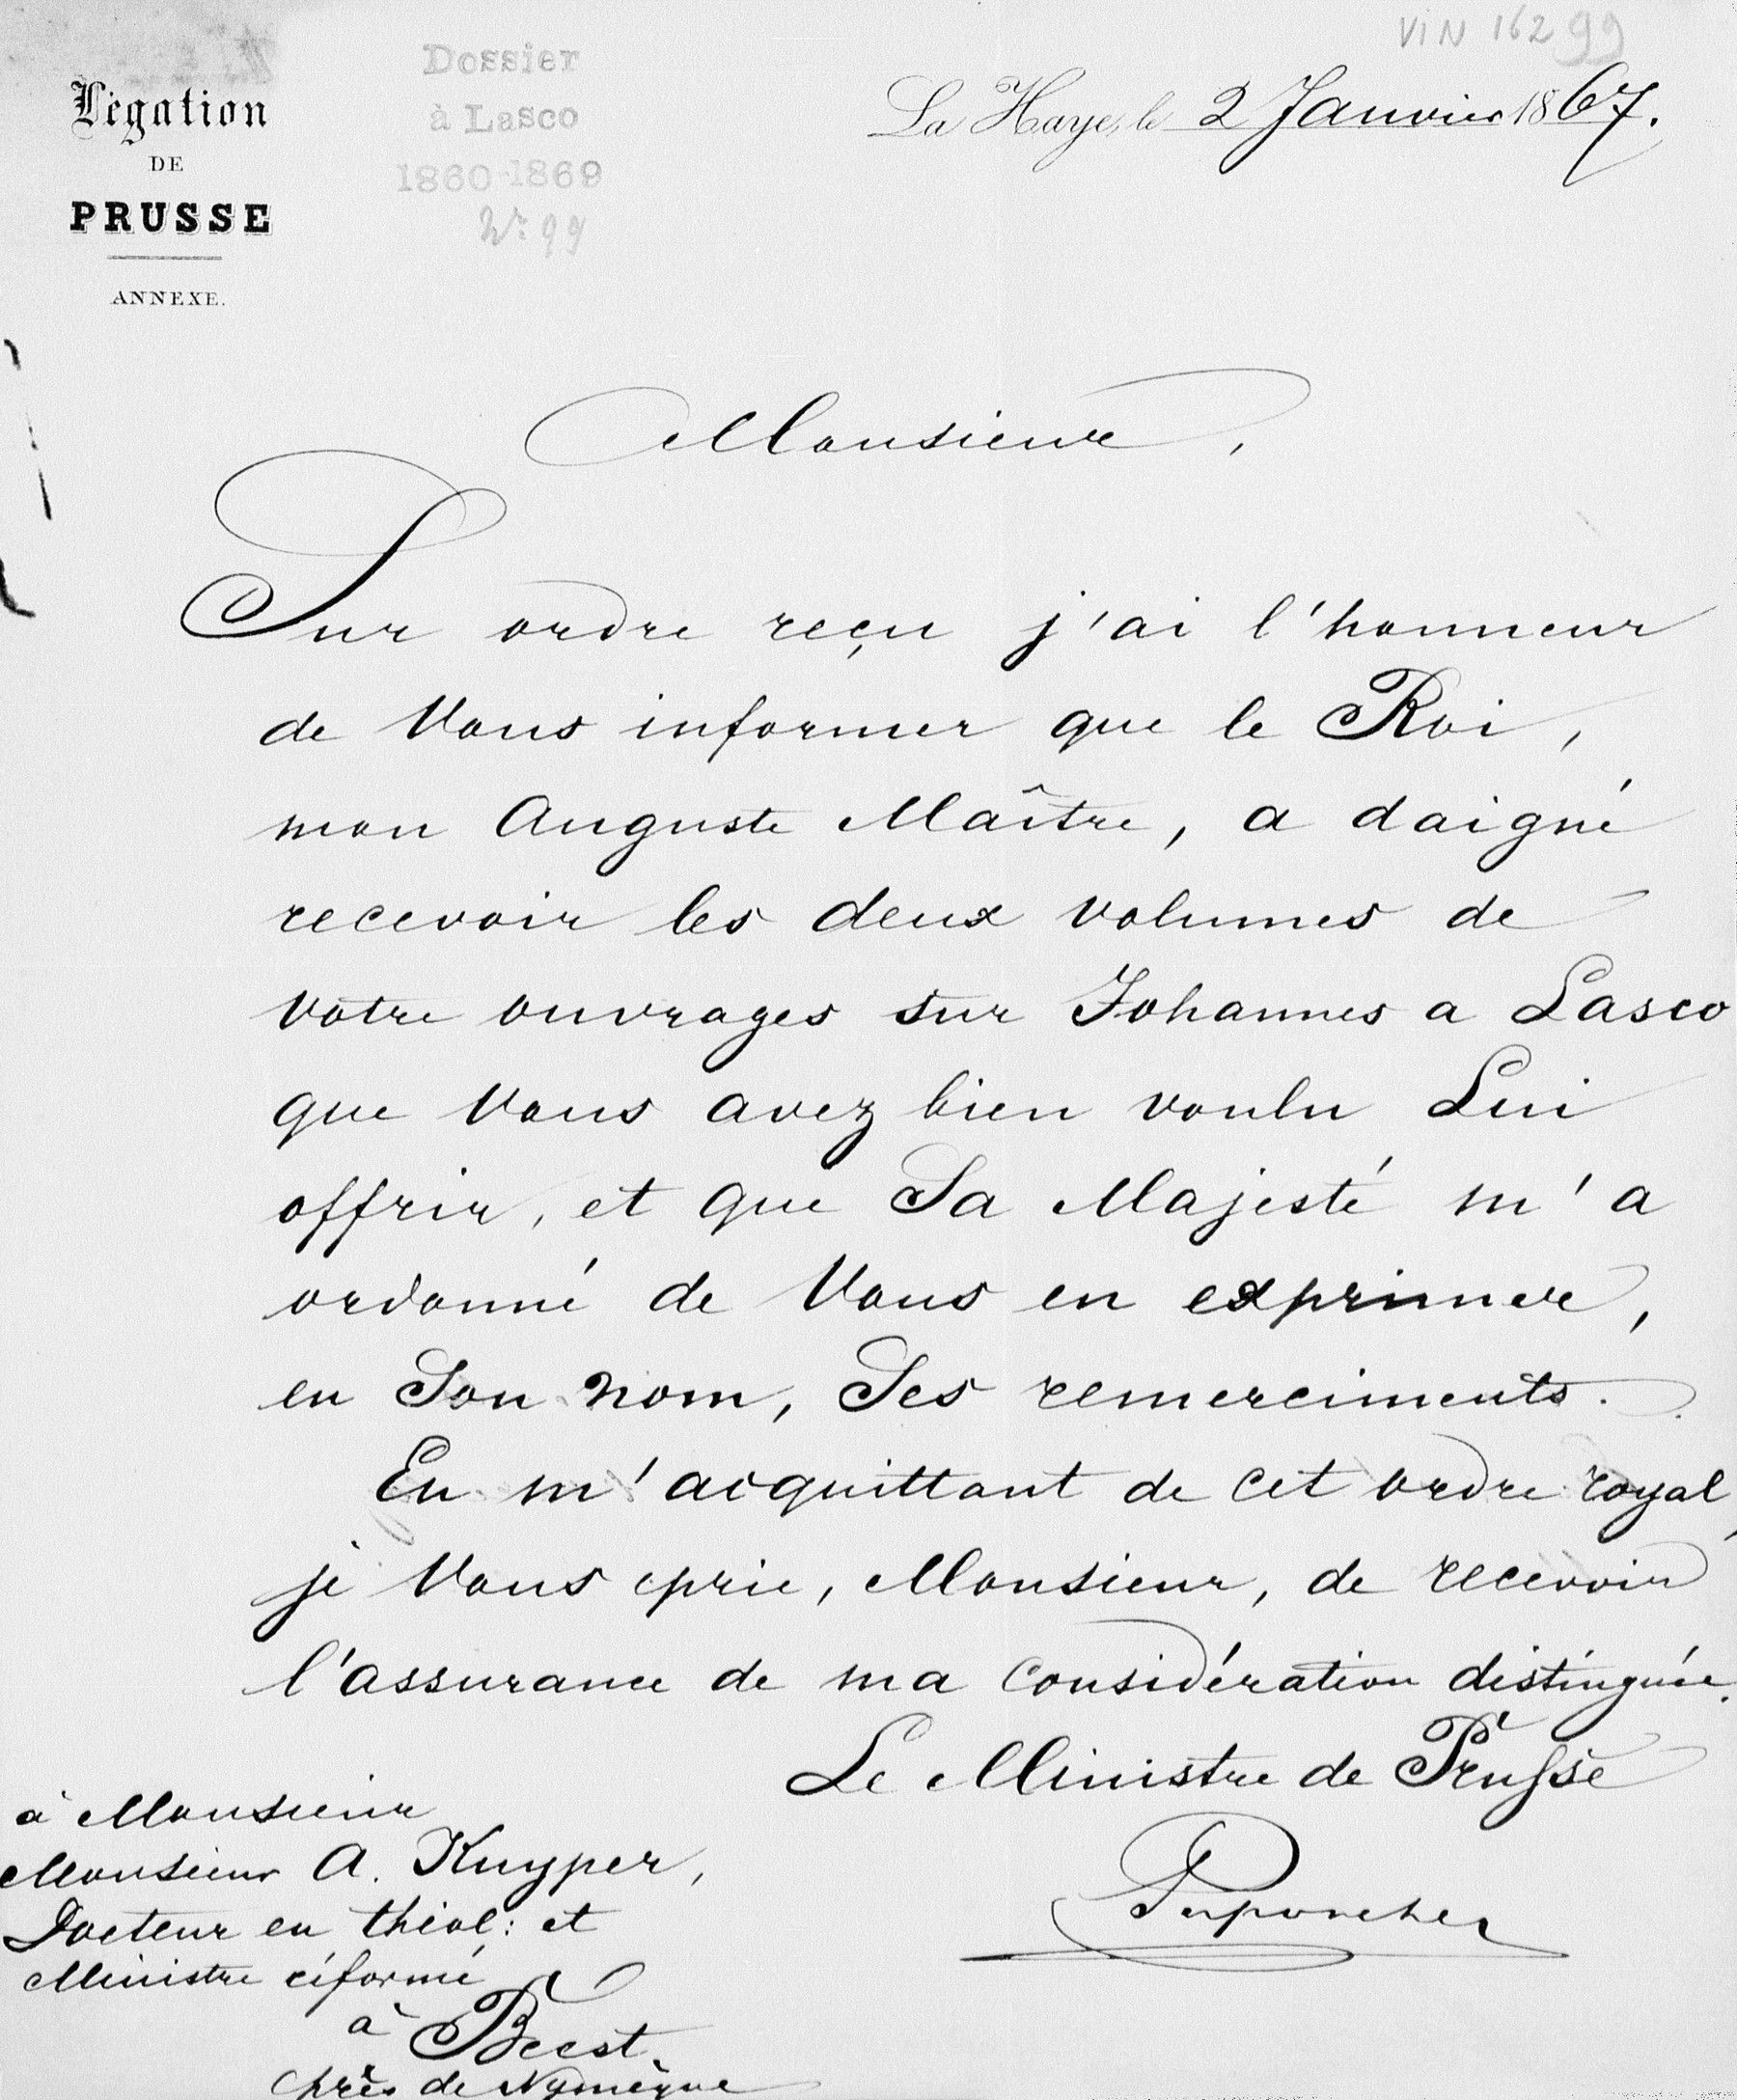 VIN 162 99
Légation
DE
PRUSSE
ANNEXE.
Dossier
à Lasco
1860-1869
Nr: 99
La Haye, le 2 Janvier 1867.
Monsieur,
Sur ordre reçu j'ai l'honneur
de Vous informer que le Roi,
mon Auguste Maître, a daigné
recevoir les deux volumes de
votre ouvrages sur Johannes a Lasco
que Vous avez bien voulu Lui
offrir, et que Sa Majesté m'a
ordonné de Vous en exprimer,
en Son nom, Ses remerciments.
En m'acquittant de cet ordre royal,
je Vous prie, Monsieur, de recevoir
l'assurance de ma considération distinguée.
Le Ministre de Prusse
Perponcher
à Monsieur
Monsieur A. Kuyper,
Docteur en théol: et
Ministre réformé
à Beest.
près de Nymègue